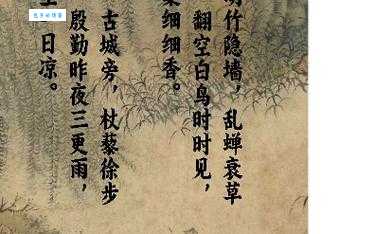 竹隐墙，乱蝉衰草
翻空白鸟时时见，
细细香。
古城旁，杖藜徐步
殷勤昨夜三更雨，
日凉。